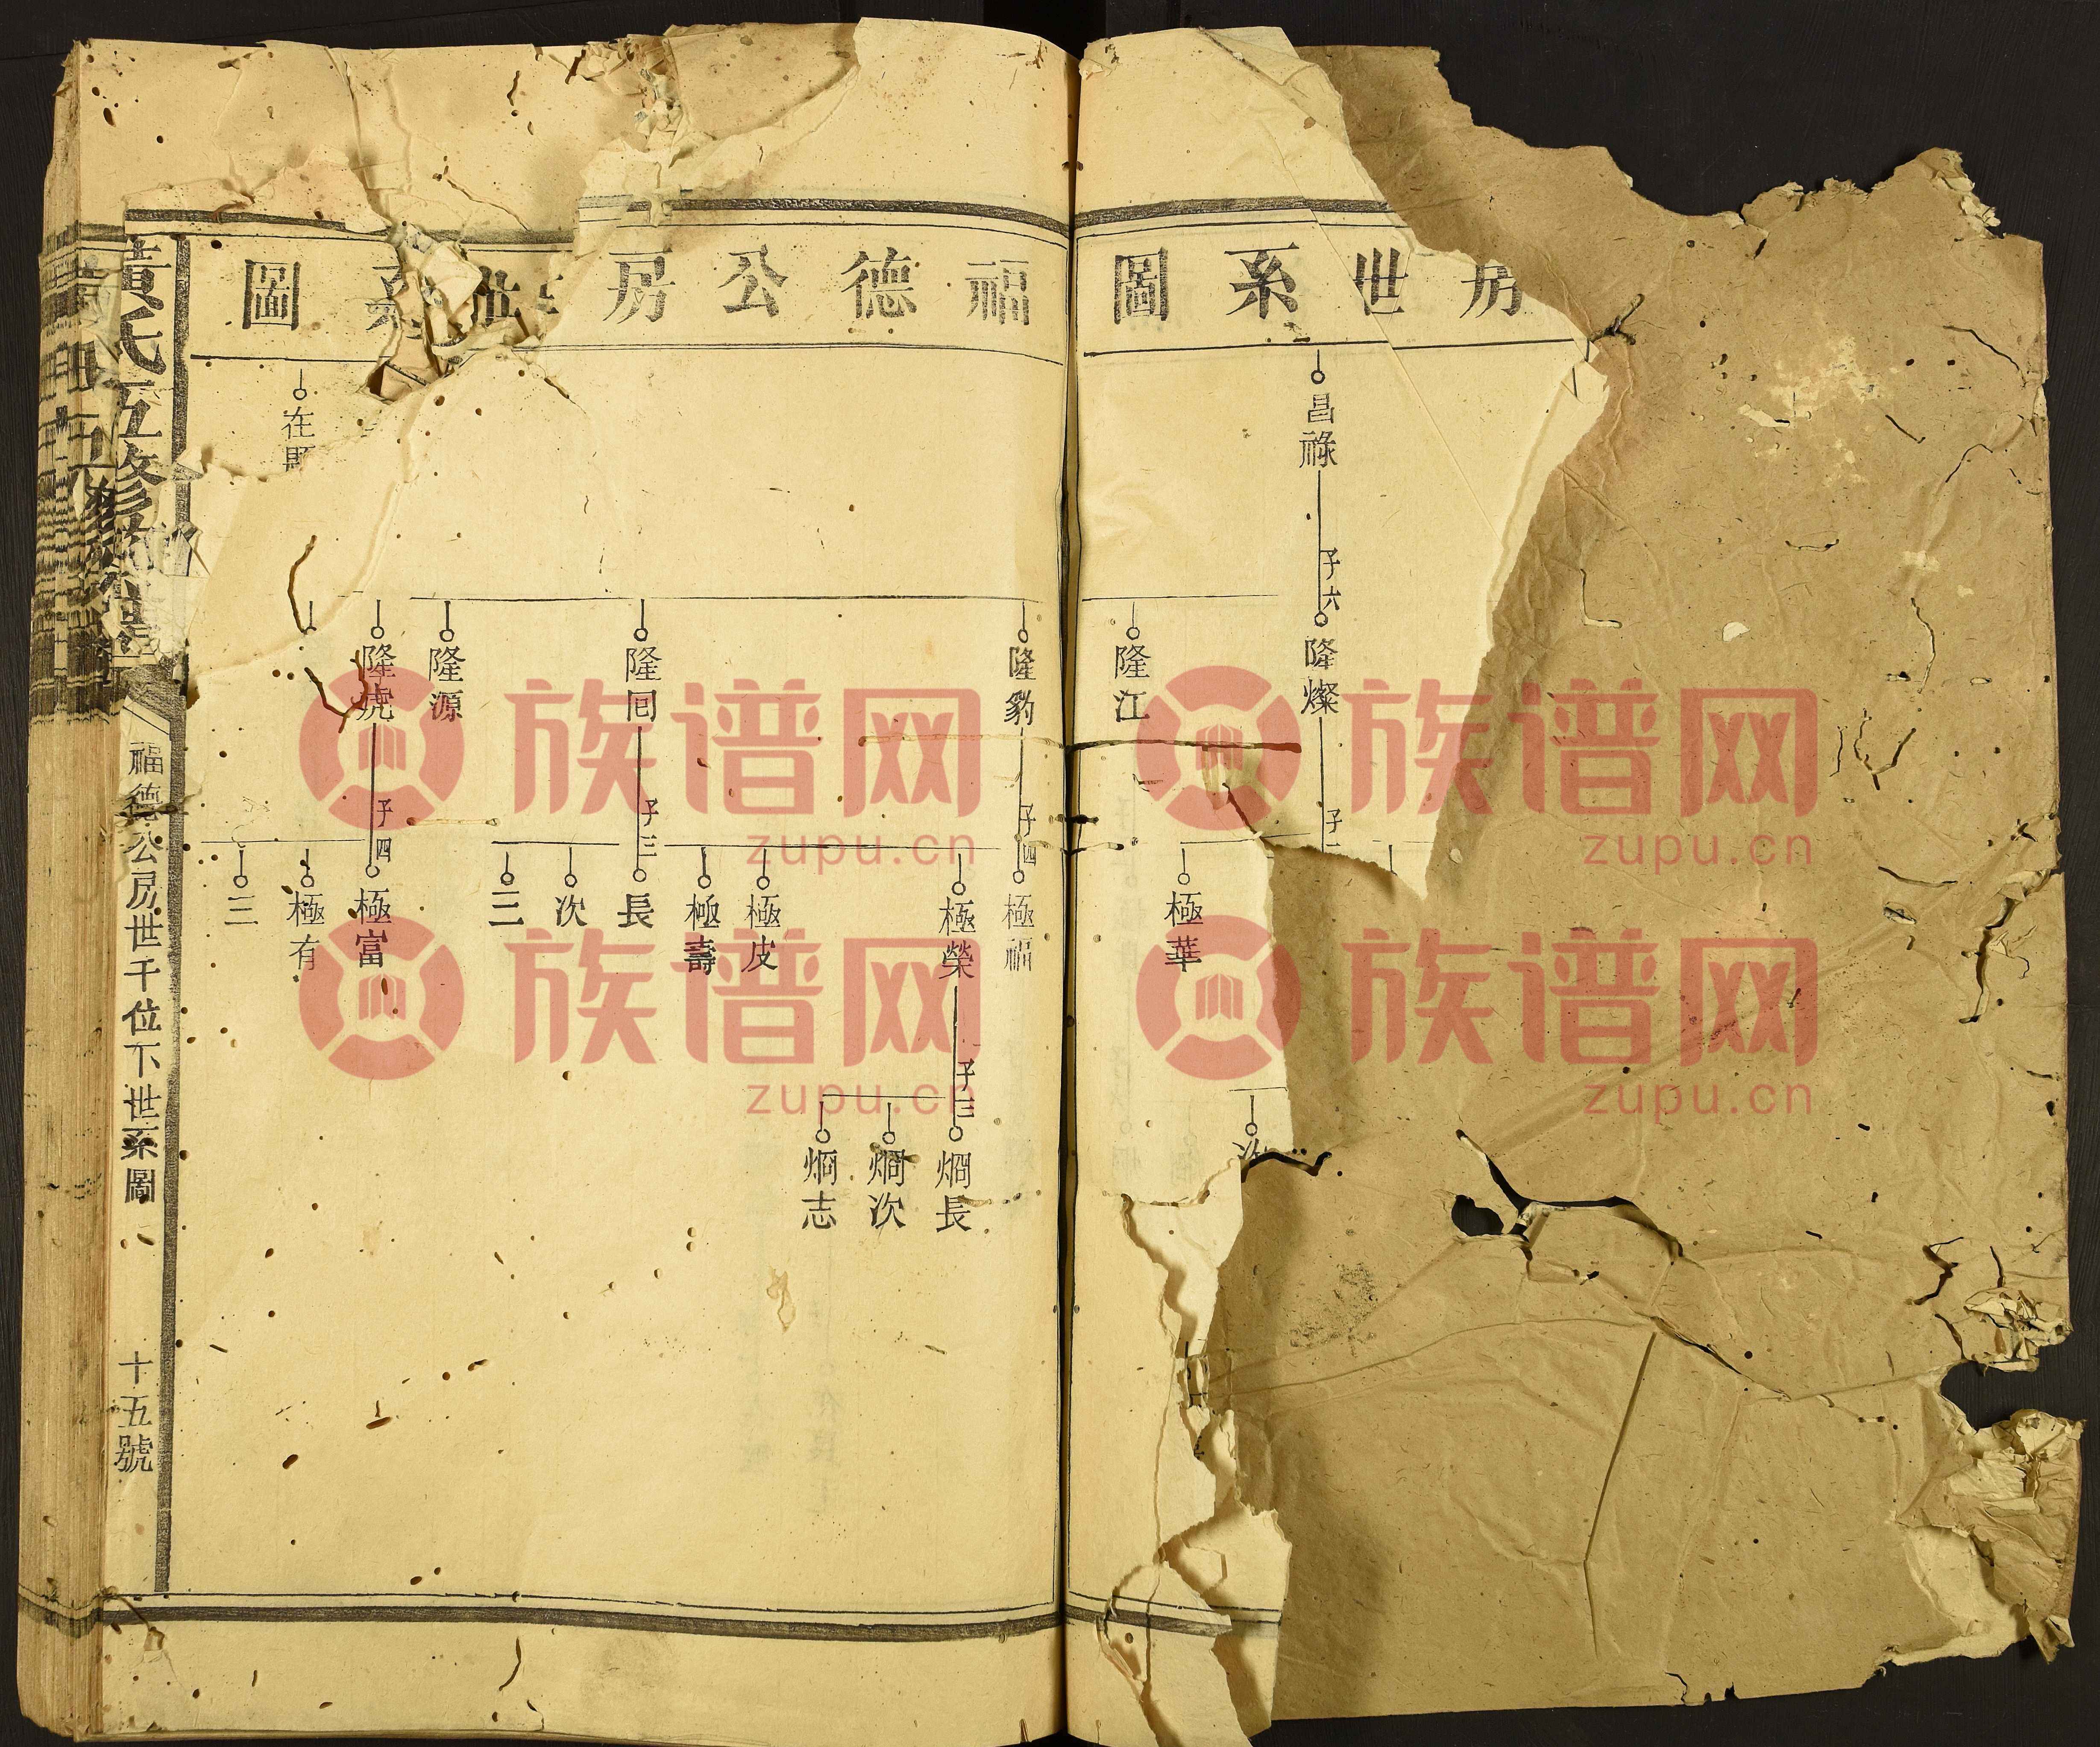 房世系圖
昌祿
子六
隆燦
子
隆江
極華
次
福德公房世系圖
隆豹
子四
極福
極榮
子三
烱長
烱次
烱志
極皮
極壽
隆囘
子三
長
次
三
隆源
隆虎
子四
極富
極有
三
在
黃氏五修
福德公房世千位下世系圖
十五號
族谱网
zupu.cn
族谱网
zupu.cn
族谱网
zupu.cn
族谱网
zupu.cn